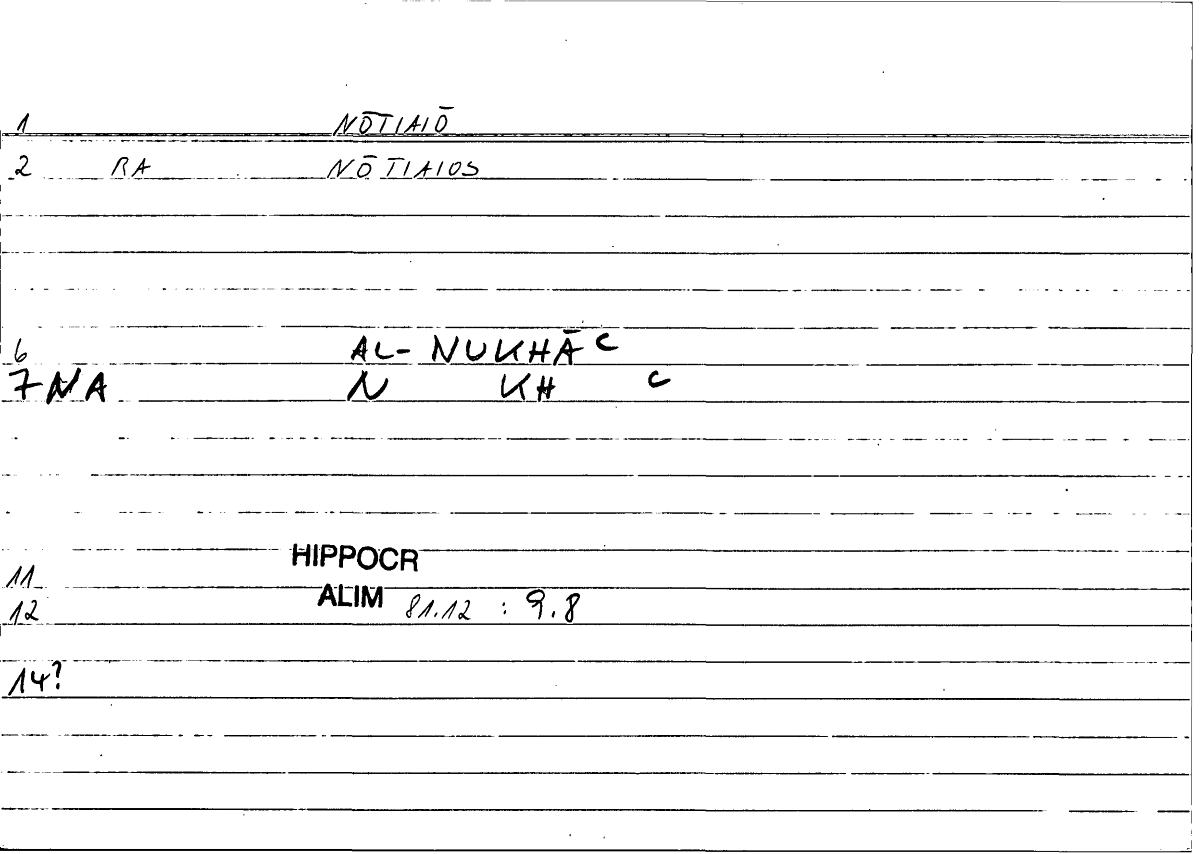 1 NŌTIAIŌ
2 RA NŌTIAIOS
6 AL-NUKHĀC
7 NA N KH C
11 HIPPOCR
12 ALIM 81.12 : 9.8
14?